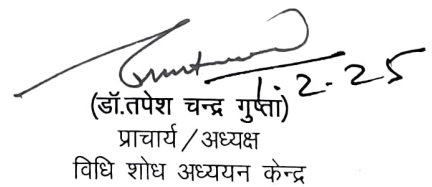 1.2.25
(डॉ.तपेश चन्द्र गुप्ता)
प्राचार्य / अध्यक्ष
विधि शोध अध्ययन केन्द्र